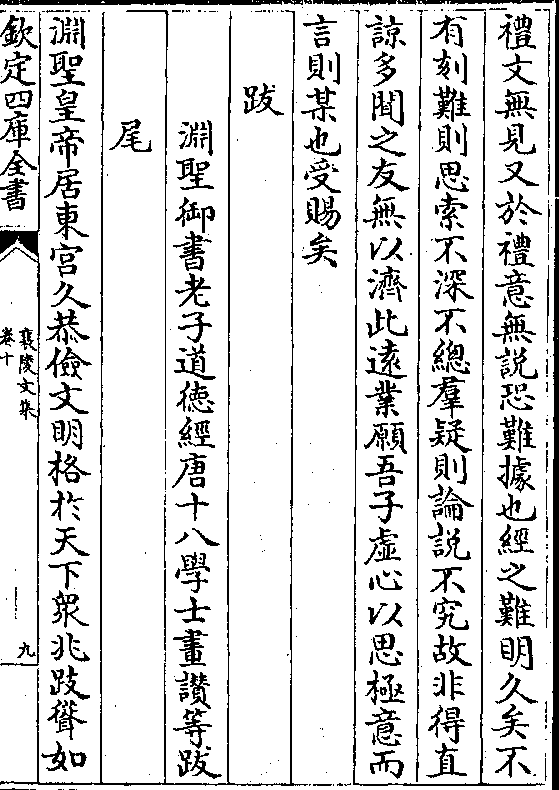 禮文無見又於禮意無說恐難據也經之難明久矣不
有刻難則思索不深不總羣疑則論說不究故非得直
諒多聞之友無以濟此遠業願吾子虛心以思極意而
言則某也受賜矣
跋
淵聖御書老子道德經唐十八學士畫讚等跋
尾
淵聖皇帝居東宮久恭儉文明格於天下衆兆跂聳如
欽定四庫全書
襄陵文集
卷十
九